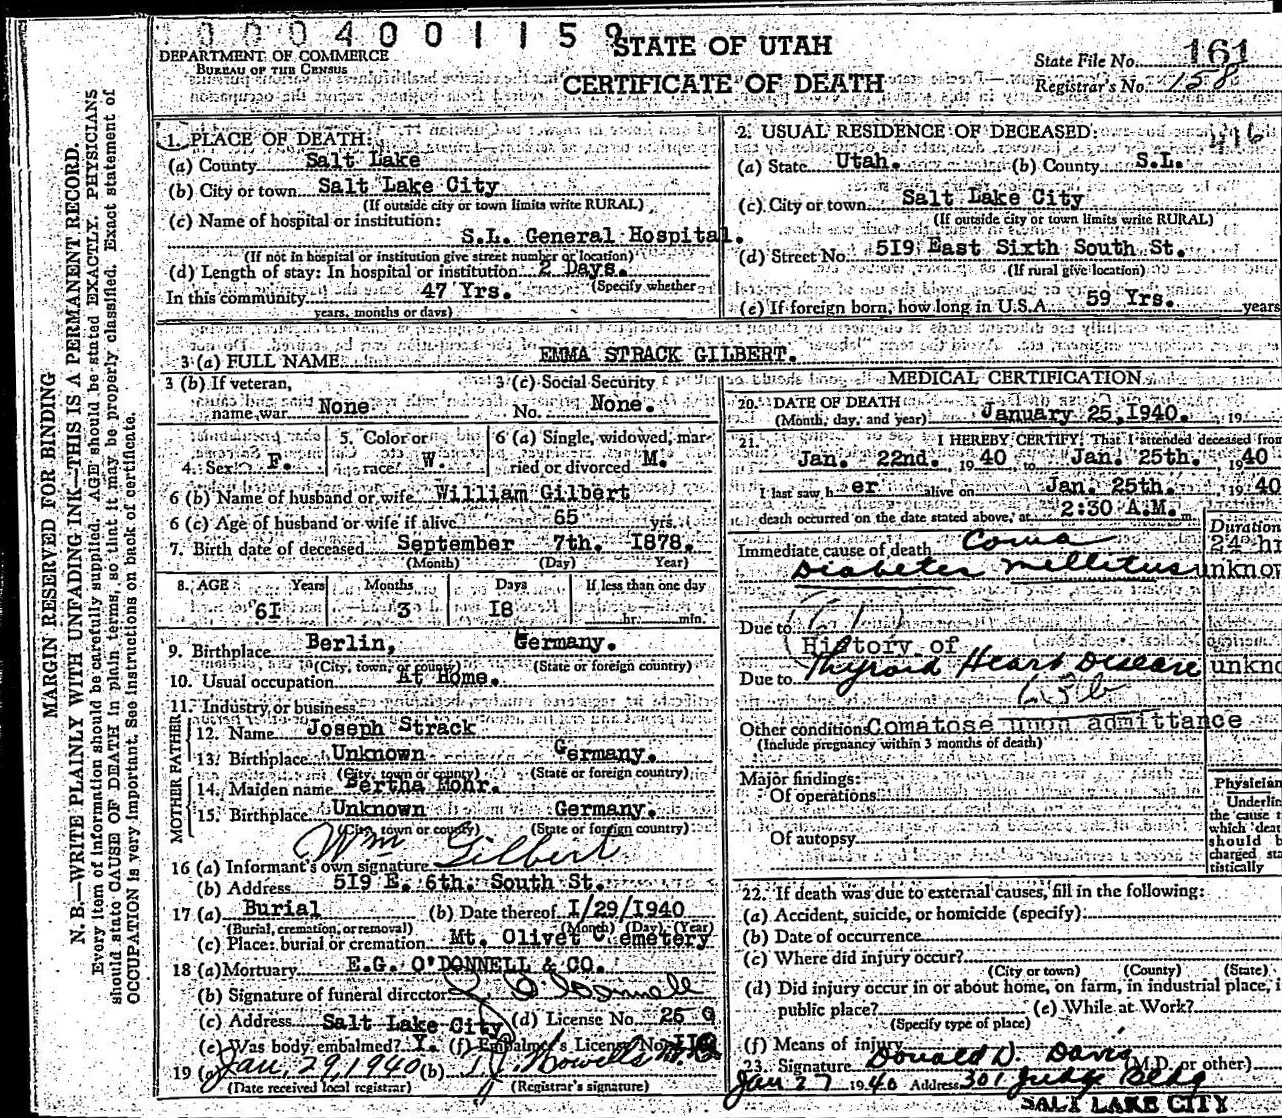 0004001159
STATE OF UTAH
CERTIFICATE OF DEATH
DEPARTMENT OF COMMERCE
BUREAU OF THE CENSUS
State File No. 161
Registrar's No. 158
MARGIN RESERVED FOR BINDING
N. B.—WRITE PLAINLY WITH UNFADING INK—THIS IS A PERMANENT RECORD.
Every item of information should be carefully supplied. AGE should be stated EXACTLY. PHYSICIANS
should state CAUSE OF DEATH in plain terms, so that it may be properly classified. Exact statement of
OCCUPATION is very important. See instructions on back of certificate.
1. PLACE OF DEATH:
(a) County Salt Lake
(b) City or town Salt Lake City
(If outside city or town limits write RURAL)
(c) Name of hospital or institution:
S.L. General Hospital.
(If not in hospital or institution give street number or location)
(d) Length of stay: In hospital or institution 2 Days.
(Specify whether
In this community 47 Yrs.
years, months or days)
2. USUAL RESIDENCE OF DECEASED:
416
(a) State Utah. (b) County S.L.
(c) City or town Salt Lake City
(If outside city or town limits write RURAL)
(d) Street No. 519 East Sixth South St.
(If rural give location)
(e) If foreign born, how long in U.S.A. 59 Yrs. years
3 (a) FULL NAME EMMA STRACK GILBERT.
3 (b) If veteran,
name war None
3 (c) Social Security
No. None.
4. Sex F.
5. Color or
race W.
6 (a) Single, widowed, mar-
ried or divorced M.
6 (b) Name of husband or wife William Gilbert
6 (c) Age of husband or wife if alive 65 yrs.
7. Birth date of deceased September 7th. 1878.
(Month) (Day) Year)
8. AGE Years Months Days If less than one day
61 3 18 hr. min.
9. Birthplace Berlin, Germany.
(City, town, or county) (State or foreign country)
10. Usual occupation At Home.
11. Industry or business
FATHER
12. Name Joseph Strack
13. Birthplace Unknown Germany.
(City, town or county) (State or foreign country)
MOTHER
14. Maiden name Bertha Mohr.
15. Birthplace Unknown Germany.
(City, town or county) (State or foreign country)
16 (a) Informant's own signature Wm Gilbert
(b) Address 519 E. 6th. South St.
17 (a) Burial (b) Date thereof 1/29/1940
(Burial, cremation, or removal) (Month) (Day) (Year)
(c) Place: burial or cremation Mt. Olivet Cemetery
18 (a) Mortuary E.G. O'DONNELL & CO.
(b) Signature of funeral director O'Donnell
(c) Address Salt Lake City (d) License No. 25
(e) Was body embalmed? Y. (f) Embalmer's License No.
19 (a) Jan. 29, 1940 (b) T.J. Howells M.D.
(Date received local registrar) (Registrar's signature)
MEDICAL CERTIFICATION
20. DATE OF DEATH
(Month, day, and year) January 25, 1940. 19
21. I HEREBY CERTIFY: That I attended deceased from
Jan. 22nd. 1940 to Jan. 25th. 1940
I last saw her alive on Jan. 25th. 1940
death occurred on the date stated above, at 2:30 A.M. m.
Duration
Immediate cause of death Coma 24 hr
Diabetes Mellitus unknow
Due to
History of
Due to Thyroid Heart Disease unkno
63b
Other conditions Comatose upon admittance
(Include pregnancy within 3 months of death)
Major findings:
Of operations
Of autopsy
Physician
Underlin
the cause
which deat
should b
charged sta
tistically
22. If death was due to external causes, fill in the following:
(a) Accident, suicide, or homicide (specify):
(b) Date of occurrence
(c) Where did injury occur?
(City or town) (County) (State)
(d) Did injury occur in or about home, on farm, in industrial place, i
public place? (e) While at Work?
(Specify type of place)
(f) Means of injury
23. Signature Donald D. Davis (M.D. or other)
Jan 27 1940 Address 301 Judge Bldg
SALT LAKE CITY